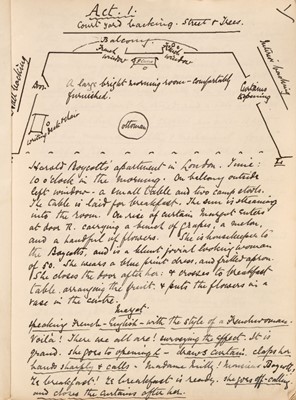 Act. I.
Court yard backing. Street & Trees.
Balcony
French window
window
Door
A large bright morning room - comfortably
furnished.
Curtains
opening
Interior backing
writing desk & chair
ottoman
Harold Boycott's apartment in London. Time:
10 o'clock in the morning. On balcony outside
left window - a small table and two camp stools.
The table is laid for breakfast. The sun is streaming
into the room. On rise of curtain Margot enters
at door R. carrying a bunch of grapes, a melon,
and a handful of flowers. She is housekeeper to
the Boycotts, and is a stout jovial looking woman
of 50. She wears a blue print dress, and frilled apron.
She closes the door after her: & crosses to breakfast
table, arranging the fruit, & puts the flowers in a
vase in the centre.
Margot
speaking French-English - with the style of a Frenchwoman -
Voilà! There we all are! surveying the effect. It is
grand. she goes to opening L - draws curtain. claps her
hands sharply & calls - Madame Milly! monsieur Boycott,
Ze breakfast! Ze breakfast is ready. she goes off - calling
and closes the curtains after her.